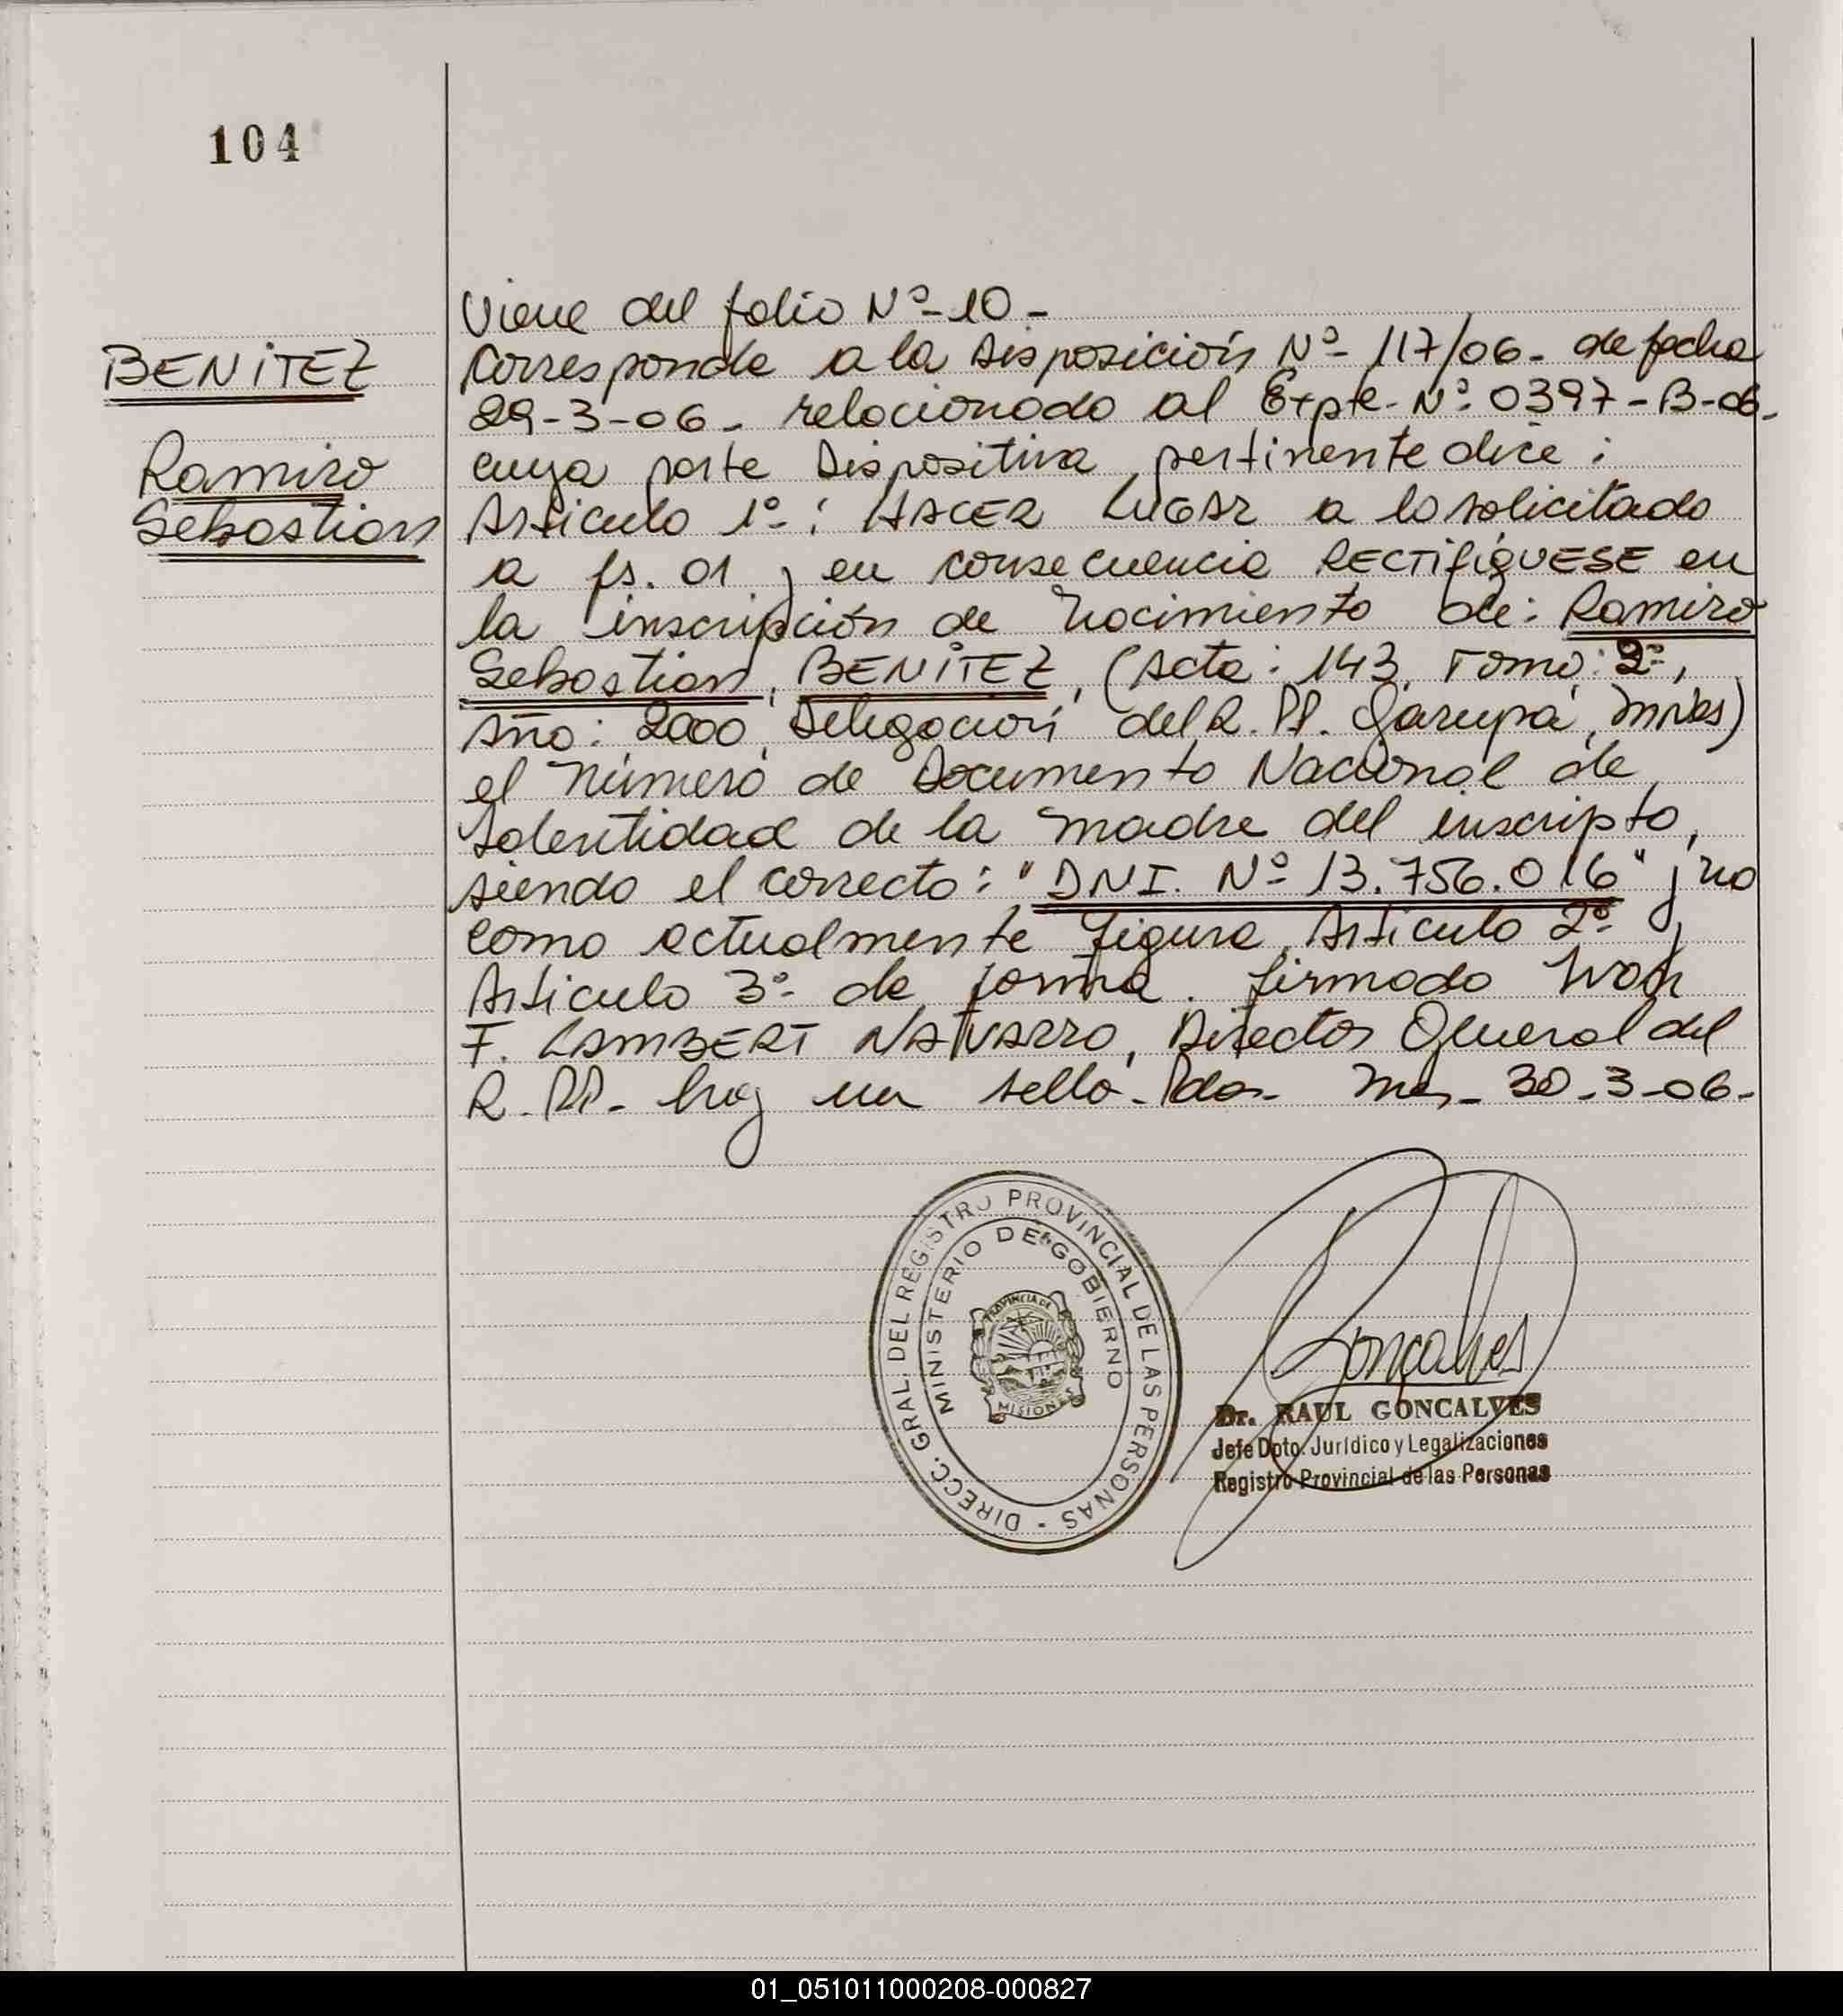 104
BENITEZ
Ramiro
Sebastian
Viene del folio Nº 10 -
Corresponde a la Disposición Nº 117/06. de fecha
29-3-06. relacionado al Expte. Nº: 0397-B-06.
cuya parte Dispositiva, pertinente dice:
Artículo 1º: HACER LUGAR a lo solicitado
a fs. 01 y en consecuencia RECTIFÍQUESE en
la inscripción de Nacimiento de: Ramiro
Sebastian, BENITEZ, (Acta: 143, Tomo: 2º,
Año: 2000, Delegación del R. PP. Garupá, Mnes)
el Número de Documento Nacional de
Identidad de la madre del inscripto,
siendo el correcto: "DNI. Nº 13.756.016" y no
como actualmente figura, Artículo 2º y
Artículo 3º de forma. firmado Ivan
F. LAMBERT NAVARRO, Director General del
R. PP. hay un sello. Pdas. Mnes. 30-3-06.
DIRECC. GRAL. DEL REGISTRO PROVINCIAL DE LAS PERSONAS -
MINISTERIO DE GOBIERNO
PROVINCIA DE
MISIONES
Goncalves
Dr. RAUL GONCALVES
Jefe Dpto. Jurídico y Legalizaciones
Registro Provincial de las Personas
01_051011000208-000827